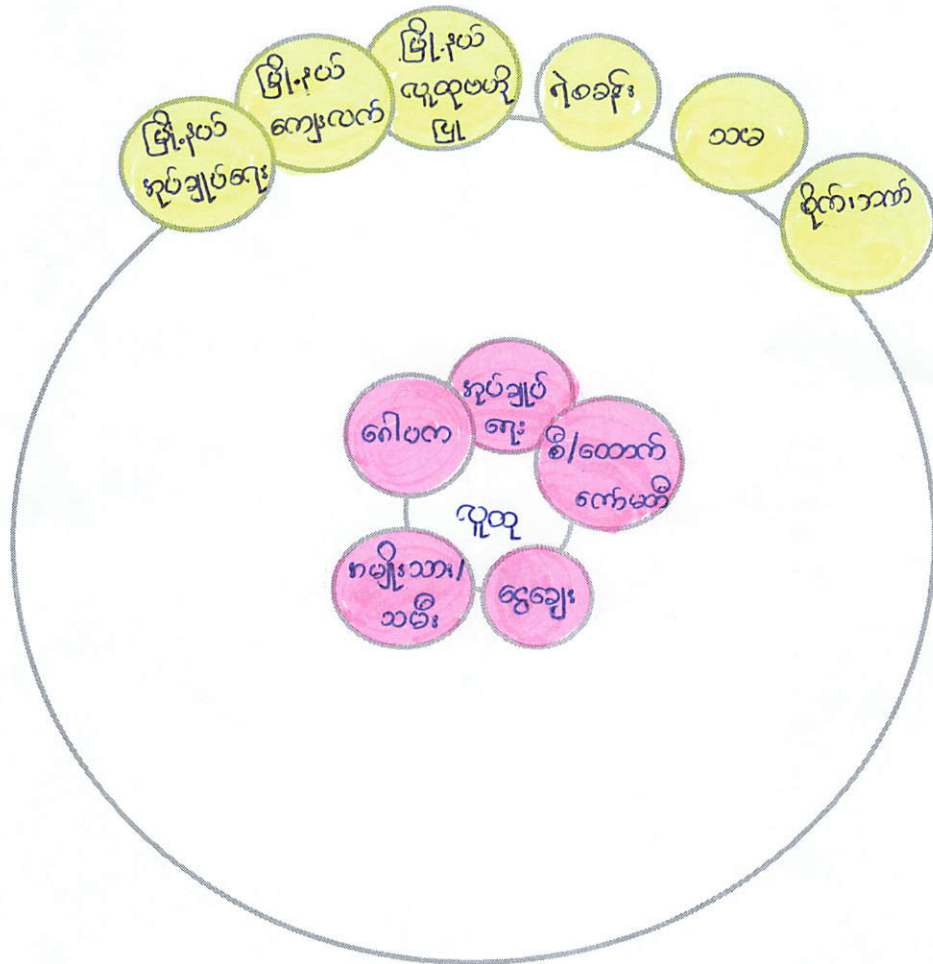 မြို့နယ်
အုပ်ချုပ်ရေး
မြို့နယ်
ကျေးလက်
မြို့နယ်
လူထုဗဟို
ပြု
ရဲစခန်း
သမ
စိုက်ဘဏ်
အုပ်ချုပ်
ရေး
ဂေါပက
စီ/ထောက်
ကော်မတီ
လူထု
အမျိုးသား/
သမီး
ငွေချေး